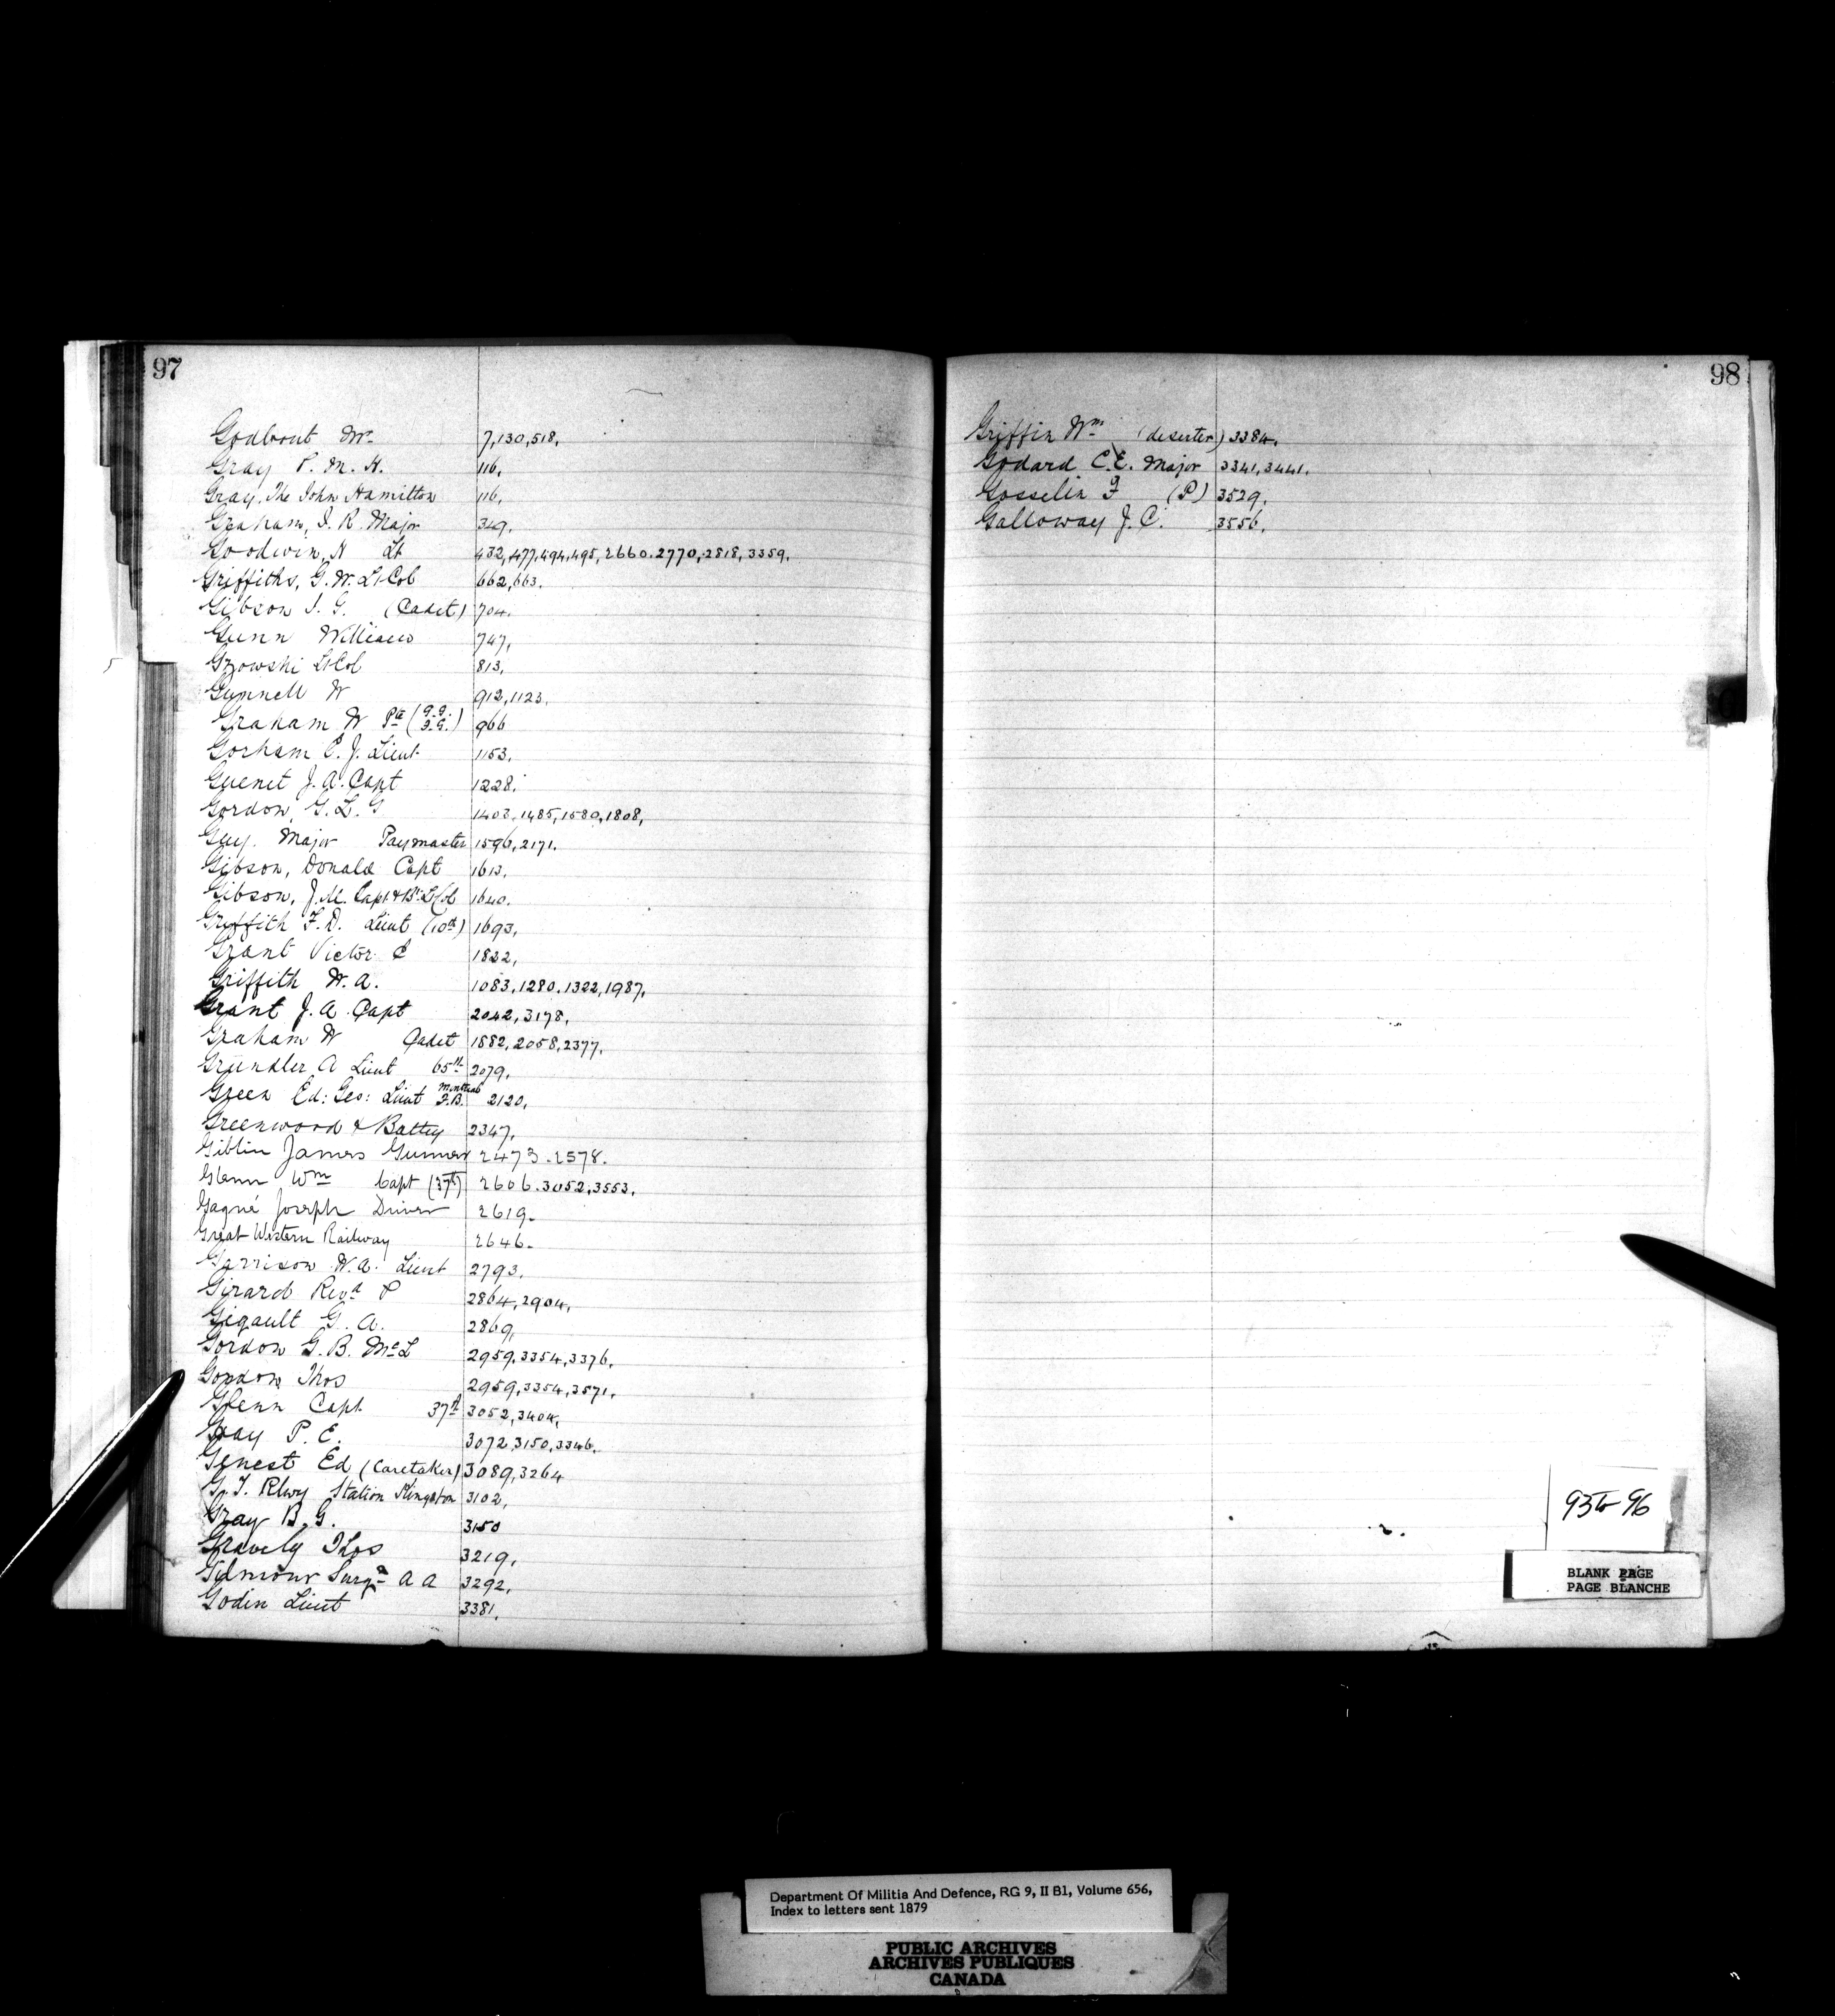 97
Godbout Mr 7, 130, 518,
Gray P. M. H. 116,
Gray, The John Hamilton 116,
Graham, J. R. Major 349,
Goodwin, N Lt 432, 477, 494, 495, 2660. 2770, 2818, 3359.
Griffiths, G. W. Lt Col 662, 663.
Gibson J. G. (Cadet) 704.
Gunn William 747,
Gzowski Lt Col 813,
Gunnell W 912, 1123,
Graham W Pte (G.G. F.G.) 966
Gorham C. J. Lieut 1153,
Guenet J. A. Capt 1228.
Gordon, G. L. G 1403, 1485, 1580, 1808,
Guy. Major Paymaster 1596, 2171.
Gibson, Donald Capt 1613,
Gibson, J. M. Capt & Bt Lt Col 1640.
Griffith F. D. Lieut (10th) 1693,
Grant Victor E 1822,
Griffith W. A. 1083, 1280. 1322, 1987,
Grant J. A. Capt 2042, 3178,
Graham W Cadet 1882, 2058, 2377,
Grundler A Lieut 65th 2079,
Green Ed: Geo: Lieut Montreal F.B. 2120,
Greenwood & Battey 2347,
Giblin James Gunner 2473. 2578.
Glenn Wm Capt (37th) 2606. 3052, 3553,
Gagné Joseph Driver 2619.
Great Western Railway 2646.
Garrison W. A. Lieut 2793,
Girard Revd P 2864, 2904,
Gigault G. A. 2869,
Gordon G. B. McL 2959, 3354, 3376,
Gordon Thos 2959, 3354, 3571,
Glenn Capt 37th 3052, 3404,
Gray P. E. 3072, 3150, 3346,
Genest Ed (Caretaker) 3089, 3264
G. T. Rlwy Station Kingston 3102,
Gray B. G. 3150
Gravely Thos 3219,
Gilmour Surgn A A 3292,
Godin Lieut 3381,
98
Griffin Wm (deserter) 3384.
Godard C. E. Major 3341, 3441.
Gosselin F (P) 3529,
Galloway J. C. 3556,
93 to 96
BLANK PAGE
PAGE BLANCHE
Department Of Militia And Defence, RG 9, II B1, Volume 656,
Index to letters sent 1879
PUBLIC ARCHIVES
ARCHIVES PUBLIQUES
CANADA